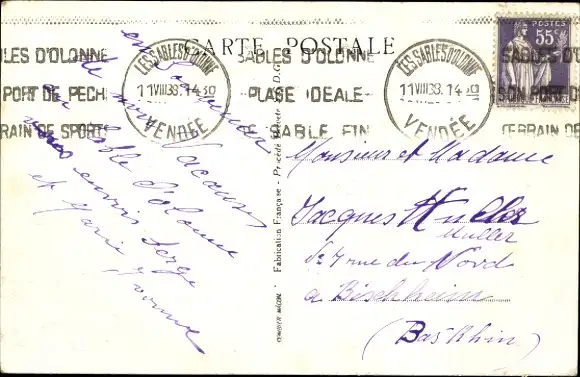 CARTE POSTALE
POSTES
55c
SABLES D'OLONNE
PORT DE PECH
RAIN DE SPORT
LES SABLES D'OLONNE
11 VIII 38. 14 30
VENDÉE
SABLES D'OLONNE
PLAGE IDEALE
SABLE FIN
LES SABLES D'OLONNE
11 VIII 38. 14 30
VENDÉE
SABLES D'OLONNE
SON PORT DE
TERRAIN DE
en souvenir
de mes Vacances
au Sable d'Olonne
envois Serge
et Marie
Yvonne
Fabrication Française - Procédé
Monsieur et Madame
Jacques Muller
Muller
rue du Nord
a Bischheim
(Bas Rhin)